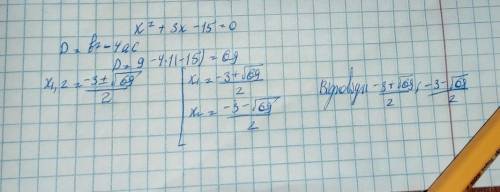 x² + 3x - 15 = 0
D = b² - 4ac
D = 9 - 4·1(-15) = 69
x₁,₂ = (-3 ± √69)/2
[ x₁ = (-3 + √69)/2
x₂ = (-3 - √69)/2
Відповідь (-3 + √69)/2 ; (-3 - √69)/2